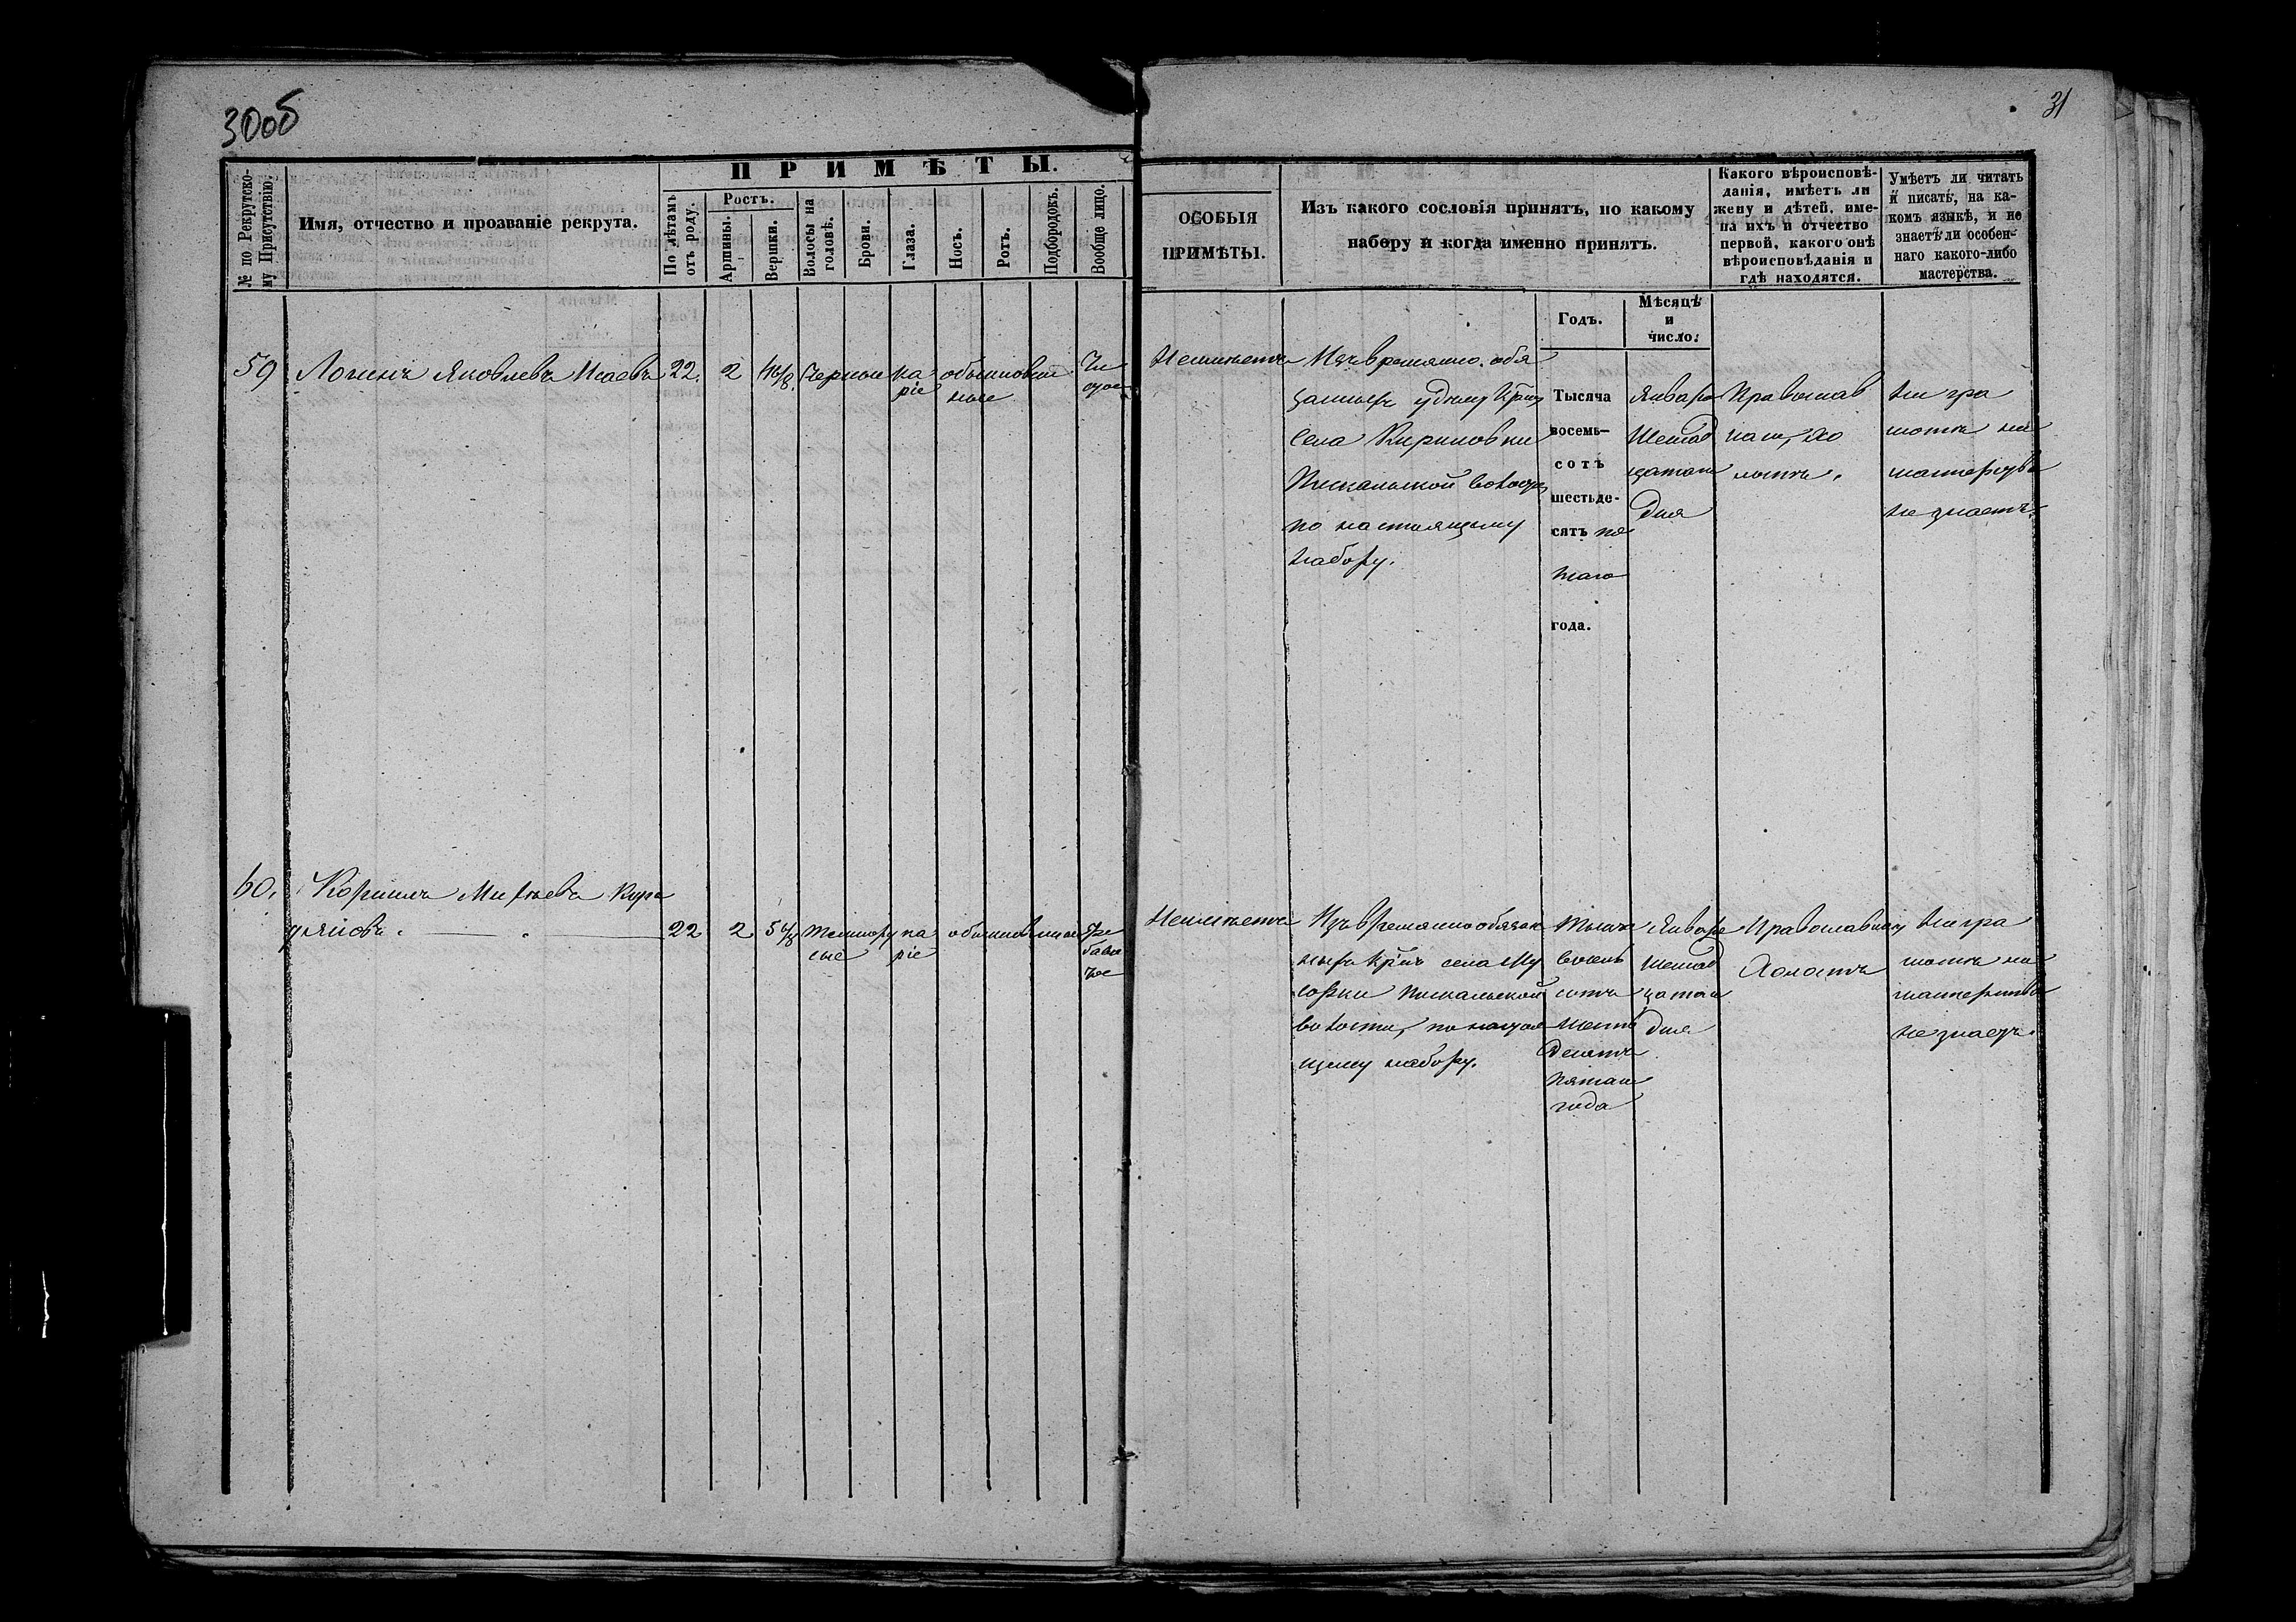 30об
31
№ по Рекрутско-
му Присутствію.
Имя, отчество и прозваніе рекрута.
ПРИМѢТЫ.
По лѣтамъ
отъ роду.
Ростъ.
Аршины.
Вершки.
Волосы на
головѣ.
Брови.
Глаза.
Носъ.
Ротъ.
Подбородокъ.
Вообще лицо.
ОСОБЫЯ
ПРИМѢТЫ.
Изъ какого сословія принятъ, по какому
набору и когда именно принятъ.
Годъ.
Мѣсяцъ
и
число.
Какого вѣроисповѣ-
данія, имѣетъ ли
жену и дѣтей, име-
на ихъ и отчество
первой, какого онѣ
вѣроисповѣданія и
гдѣ находятся.
Умѣетъ ли читать
и писать, на ка-
комъ языкѣ, и не
знаетъ ли особен-
наго какого-либо
мастерства.
59
Логинъ Яковлевъ Исаевъ
22.
2
4 6/8.
Черные
ка
ріе
обыкновен
ные
Чи
стое
Неимѣетъ
Изъ временно. обя
занныхъ
села Кириловки
Пискальской волости
по настоящему
набору.
Тысяча
восемь-
сотъ
шестьде-
сятъ пя
таго
года.
Января
Шестнад
цатаго
дня
Православ
наго, хо
лостъ.
Негра
мотенъ на
мастерства
не знаетъ.
60.
22
2
5 4/8
темнору
сые
ка
ріе
обыкновенные
Ря
бова
тое
Неимѣетъ
Изъ временнообязан
ныхъ Кр-нъ села Му
сорки Пискальской
волости, по настоя
щему набору.
Тысяча
восемь
сотъ
шесть
десятъ
пятаго
года
Января
шестнад
цатаго
дня
Православнаго
Холостъ
Негра
мотенъ на
мастерства
не знаетъ.